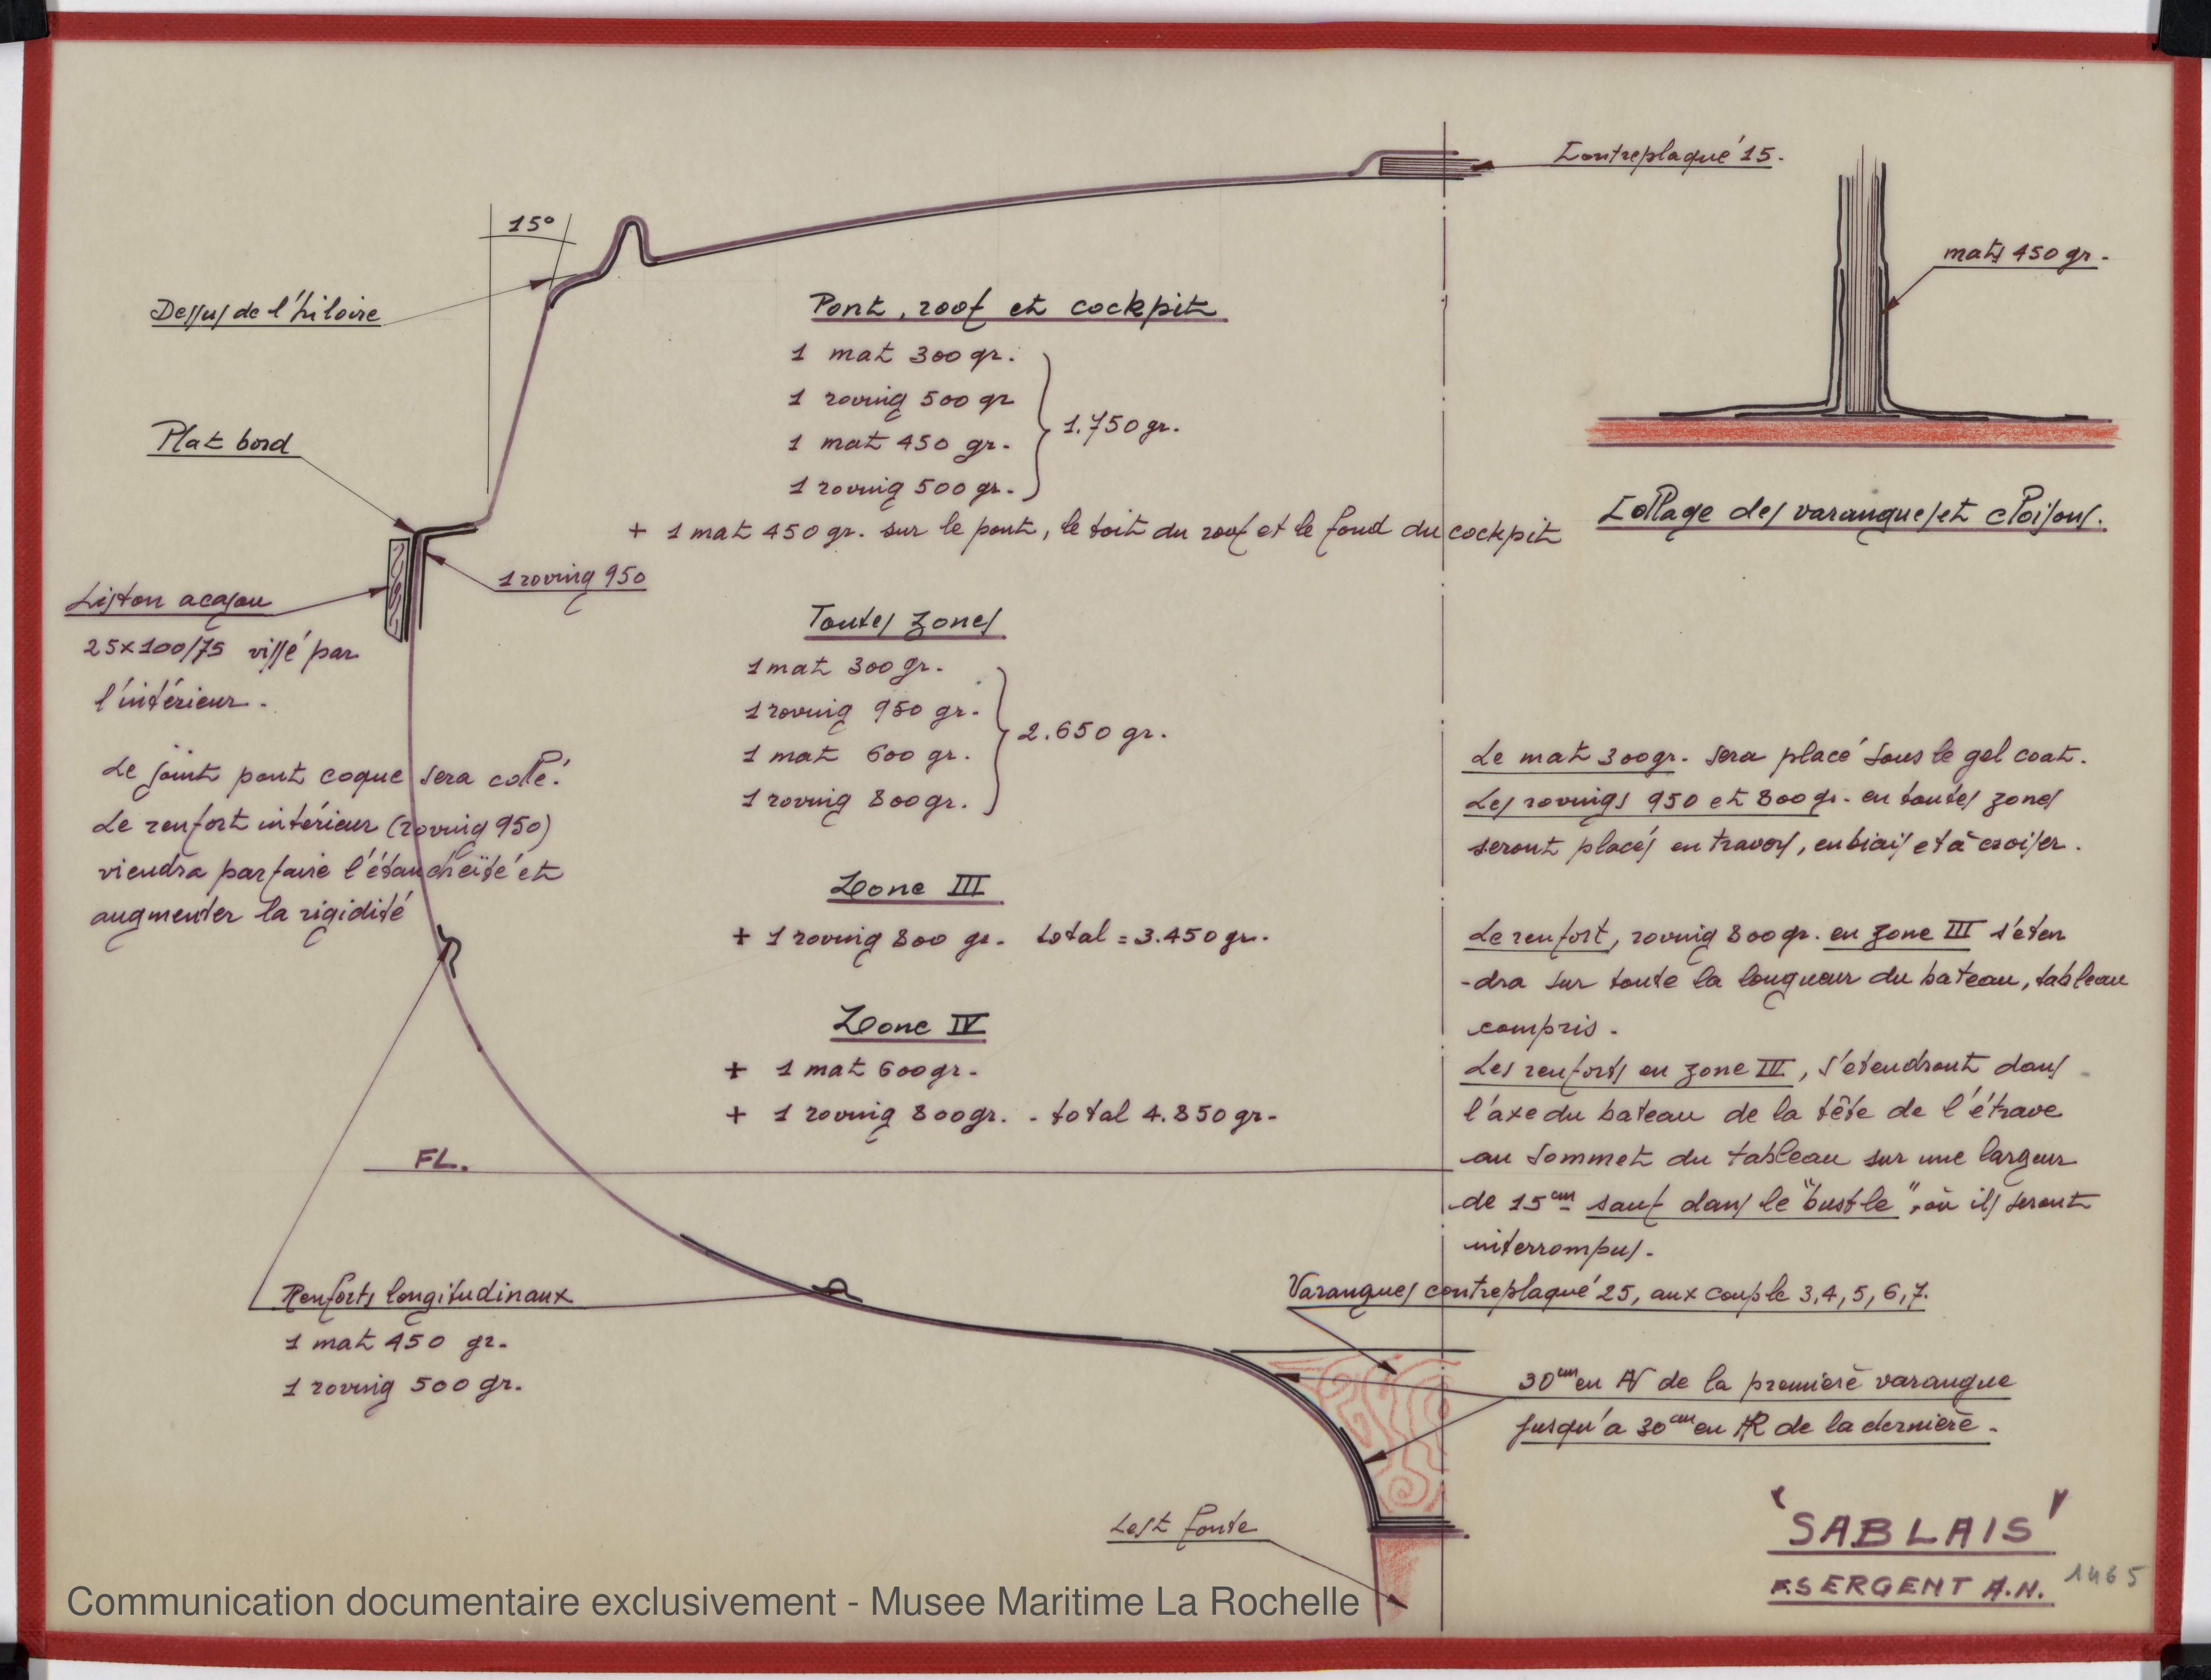 Contreplaqué 15.
15°
mats 450 gr.
Dessus de l'hiloire
Pont, roof et cockpit
1 mat 300 gr.
1 roving 500 gr
1 mat 450 gr.
1 roving 500 gr.
1.750 gr.
+ 1 mat 450 gr. sur le pont, le toit du roof et le fond du cockpit
Collage des varangues et cloisons.
Plat bord
1 roving 950
Liston acajou
25x100/75 vissé par
l'intérieur.
Toutes zones
1 mat 300 gr.
1 roving 950 gr.
1 mat 600 gr.
1 roving 800 gr.
2.650 gr.
Le joint pont coque sera collé.
Le renfort intérieur (roving 950)
viendra parfaire l'étanchéité et
augmenter la rigidité
Le mat 300 gr. sera placé sous le gel coat.
Les rovings 950 et 800 gr. en toutes zones
seront placés en travers, en biais et à croiser.
Zone III
+ 1 roving 800 gr. total = 3.450 gr.
Le renfort, roving 800 gr. en zone III s'éten
-dra sur toute la longueur du bateau, tableau
compris.
Zone IV
+ 1 mat 600 gr.
+ 1 roving 800 gr. - total 4.850 gr.
Les renforts en zone IV, s'étendront dans
l'axe du bateau de la tête de l'étrave
au sommet du tableau sur une largeur
de 15 cm sauf dans le "bustle", où ils seront
interrompus.
FL.
Renforts longitudinaux
1 mat 450 gr.
1 roving 500 gr.
Varangues contreplaqué 25, aux couple 3,4,5,6,7.
30 cm en AV de la première varangue
jusqu'a 30 cm en AR de la dernière.
Lest fonte
'SABLAIS'
F. SERGENT A.N.
1465
Communication documentaire exclusivement - Musee Maritime La Rochelle